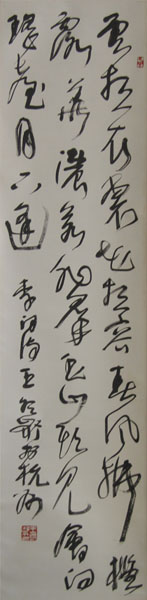 雲想衣裳花想容春風拂檻
露華濃若非羣玉山頭見會向
瑶臺月下逢 李白詩 王冬齡 杭州